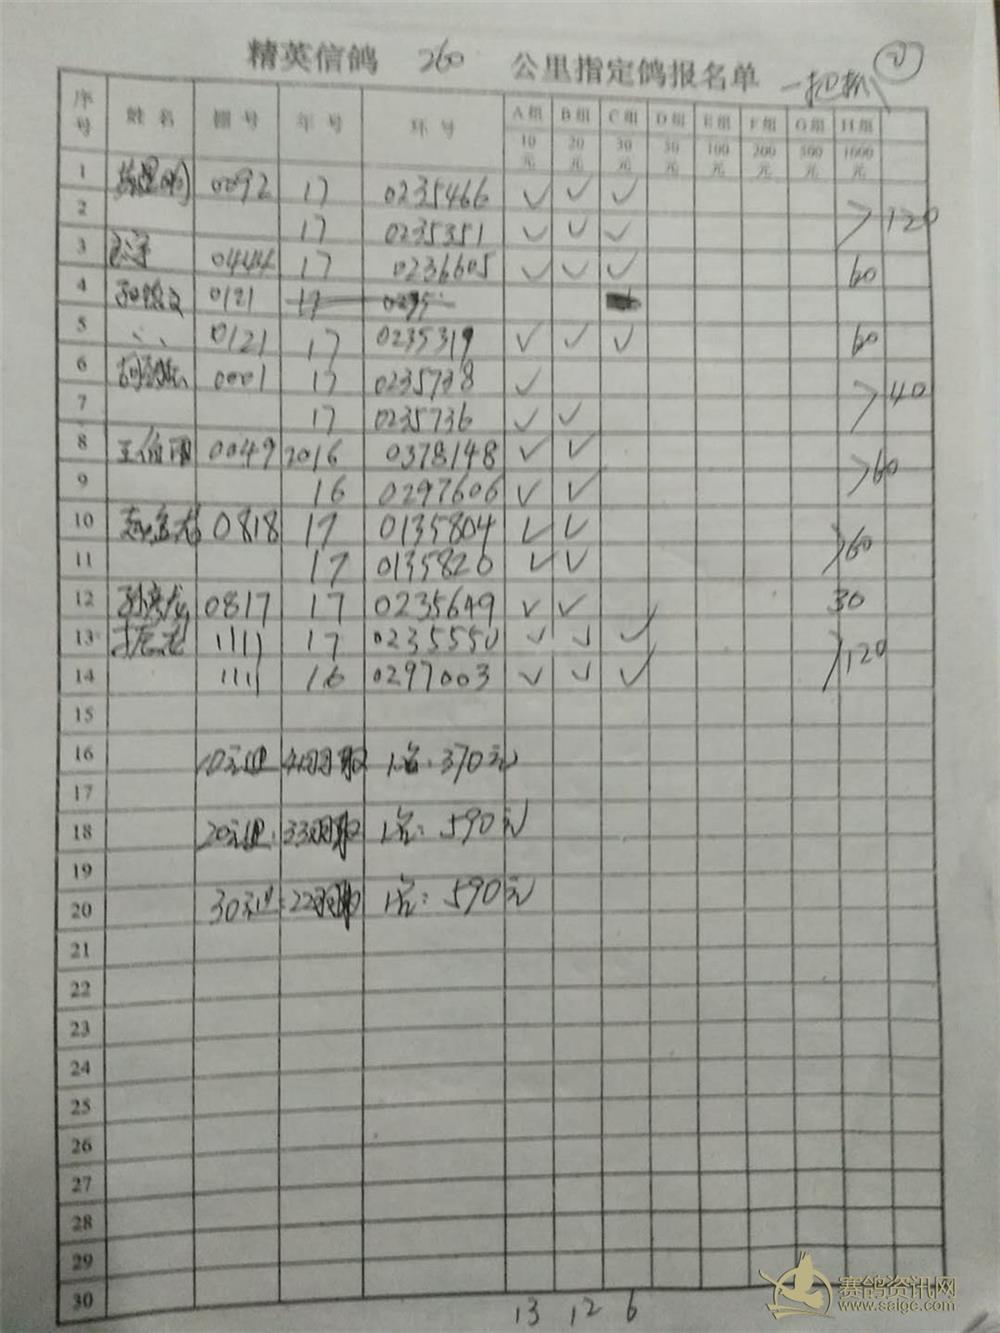 精英信鸽 260 公里指定鸽报名单 一把抓 ②
序号 姓名 棚号 年号 环号 A组 B组 C组 D组 E组 F组 G组 H组
10元 20元 30元 50元 100元 200元 500元 1000元
1 0092 17 0235466 ✓ ✓ ✓
2 17 0235351 ✓ ✓ ✓ >120
3 0444 17 0236605 ✓ ✓ ✓ 60
4 0121 17 0295
5 0121 17 0235319 ✓ ✓ ✓ 60
6 0001 17 0235738 ✓
7 17 0235736 ✓ ✓ >40
8 0049 2016 0378148 ✓ ✓
9 16 0297606 ✓ ✓ >60
10 0818 17 0135804 ✓ ✓
11 17 0135820 ✓ ✓ >60
12 孙彦龙 0817 17 0235649 ✓ ✓ 30
13 1111 17 0235550 ✓ ✓ ✓
14 1111 16 0297003 ✓ ✓ ✓ >120
15
16 10元组 羽取 1名: 370元
17
18 20元组: 33羽取 1名: 590元
19
20 30元组: 22羽取 1名: 590元
21
22
23
24
25
26
27
28
29
30
13 12 6
赛鸽资讯网
www.saigc.com